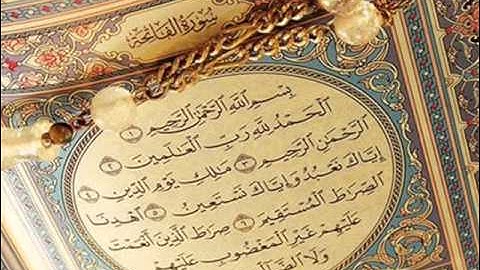 سُورَةُ الفَاتِحَةِ
بِسْمِ اللَّهِ الرَّحْمَٰنِ الرَّحِيمِ ١
الْحَمْدُ لِلَّهِ رَبِّ الْعَالَمِينَ ٢
الرَّحْمَٰنِ الرَّحِيمِ ٣ مَالِكِ يَوْمِ الدِّينِ ٤
إِيَّاكَ نَعْبُدُ وَإِيَّاكَ نَسْتَعِينُ ٥ اهْدِنَا
الصِّرَاطَ الْمُسْتَقِيمَ ٦ صِرَاطَ الَّذِينَ أَنْعَمْتَ
عَلَيْهِمْ غَيْرِ الْمَغْضُوبِ عَلَيْهِمْ
وَلَا